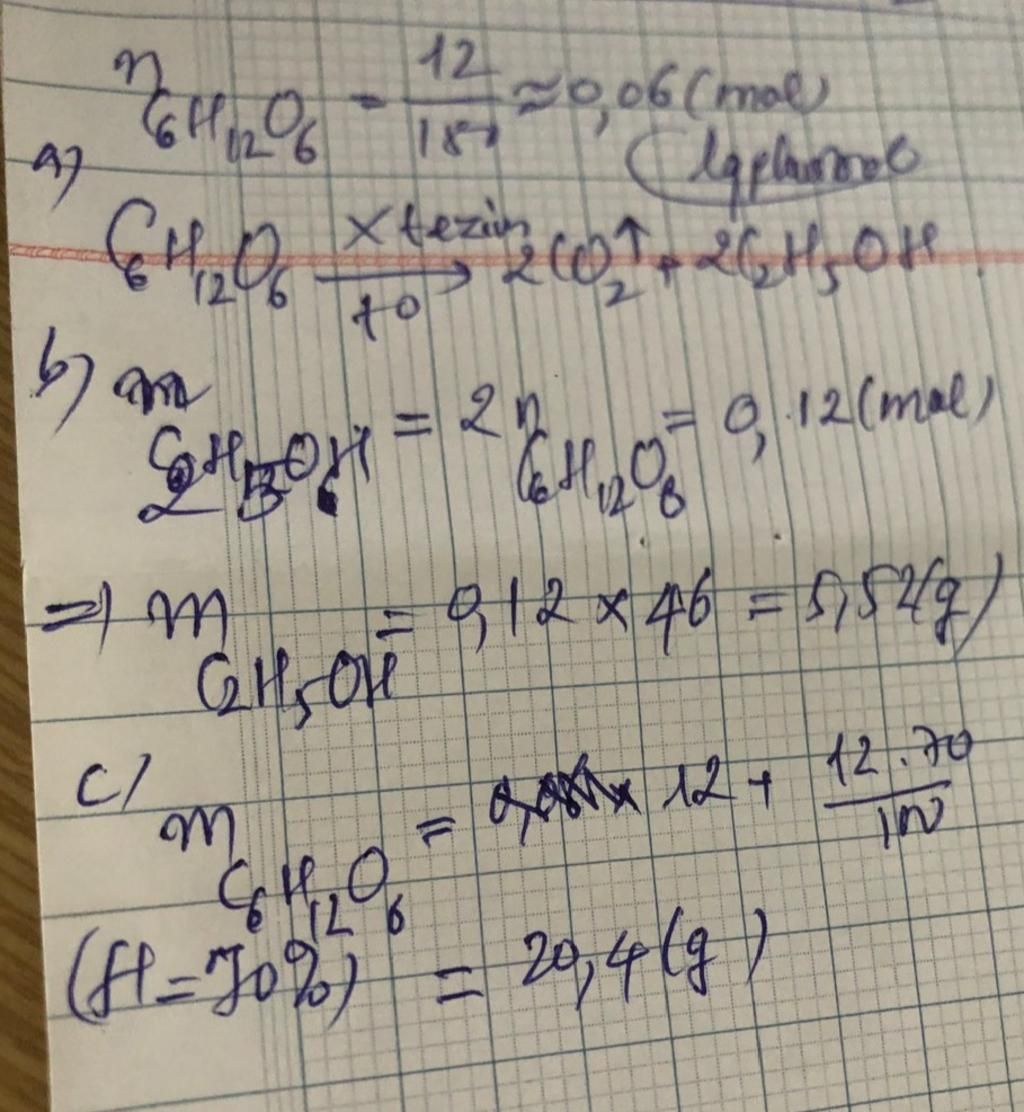 n C6H12O6 = 12/180 ≈ 0,06 (mol)
a)
C6H12O6 xt ezim → t0 2CO2↑ + 2C2H5OH
b) m C2H5OH = 2 n C6H12O6 = 0,12 (mol)
=) m C2H5OH = 0,12 x 46 = 5,52 (g)
c) m C6H12O6 = 12 + 12.70/100
(H = 70%) = 20,4 (g)